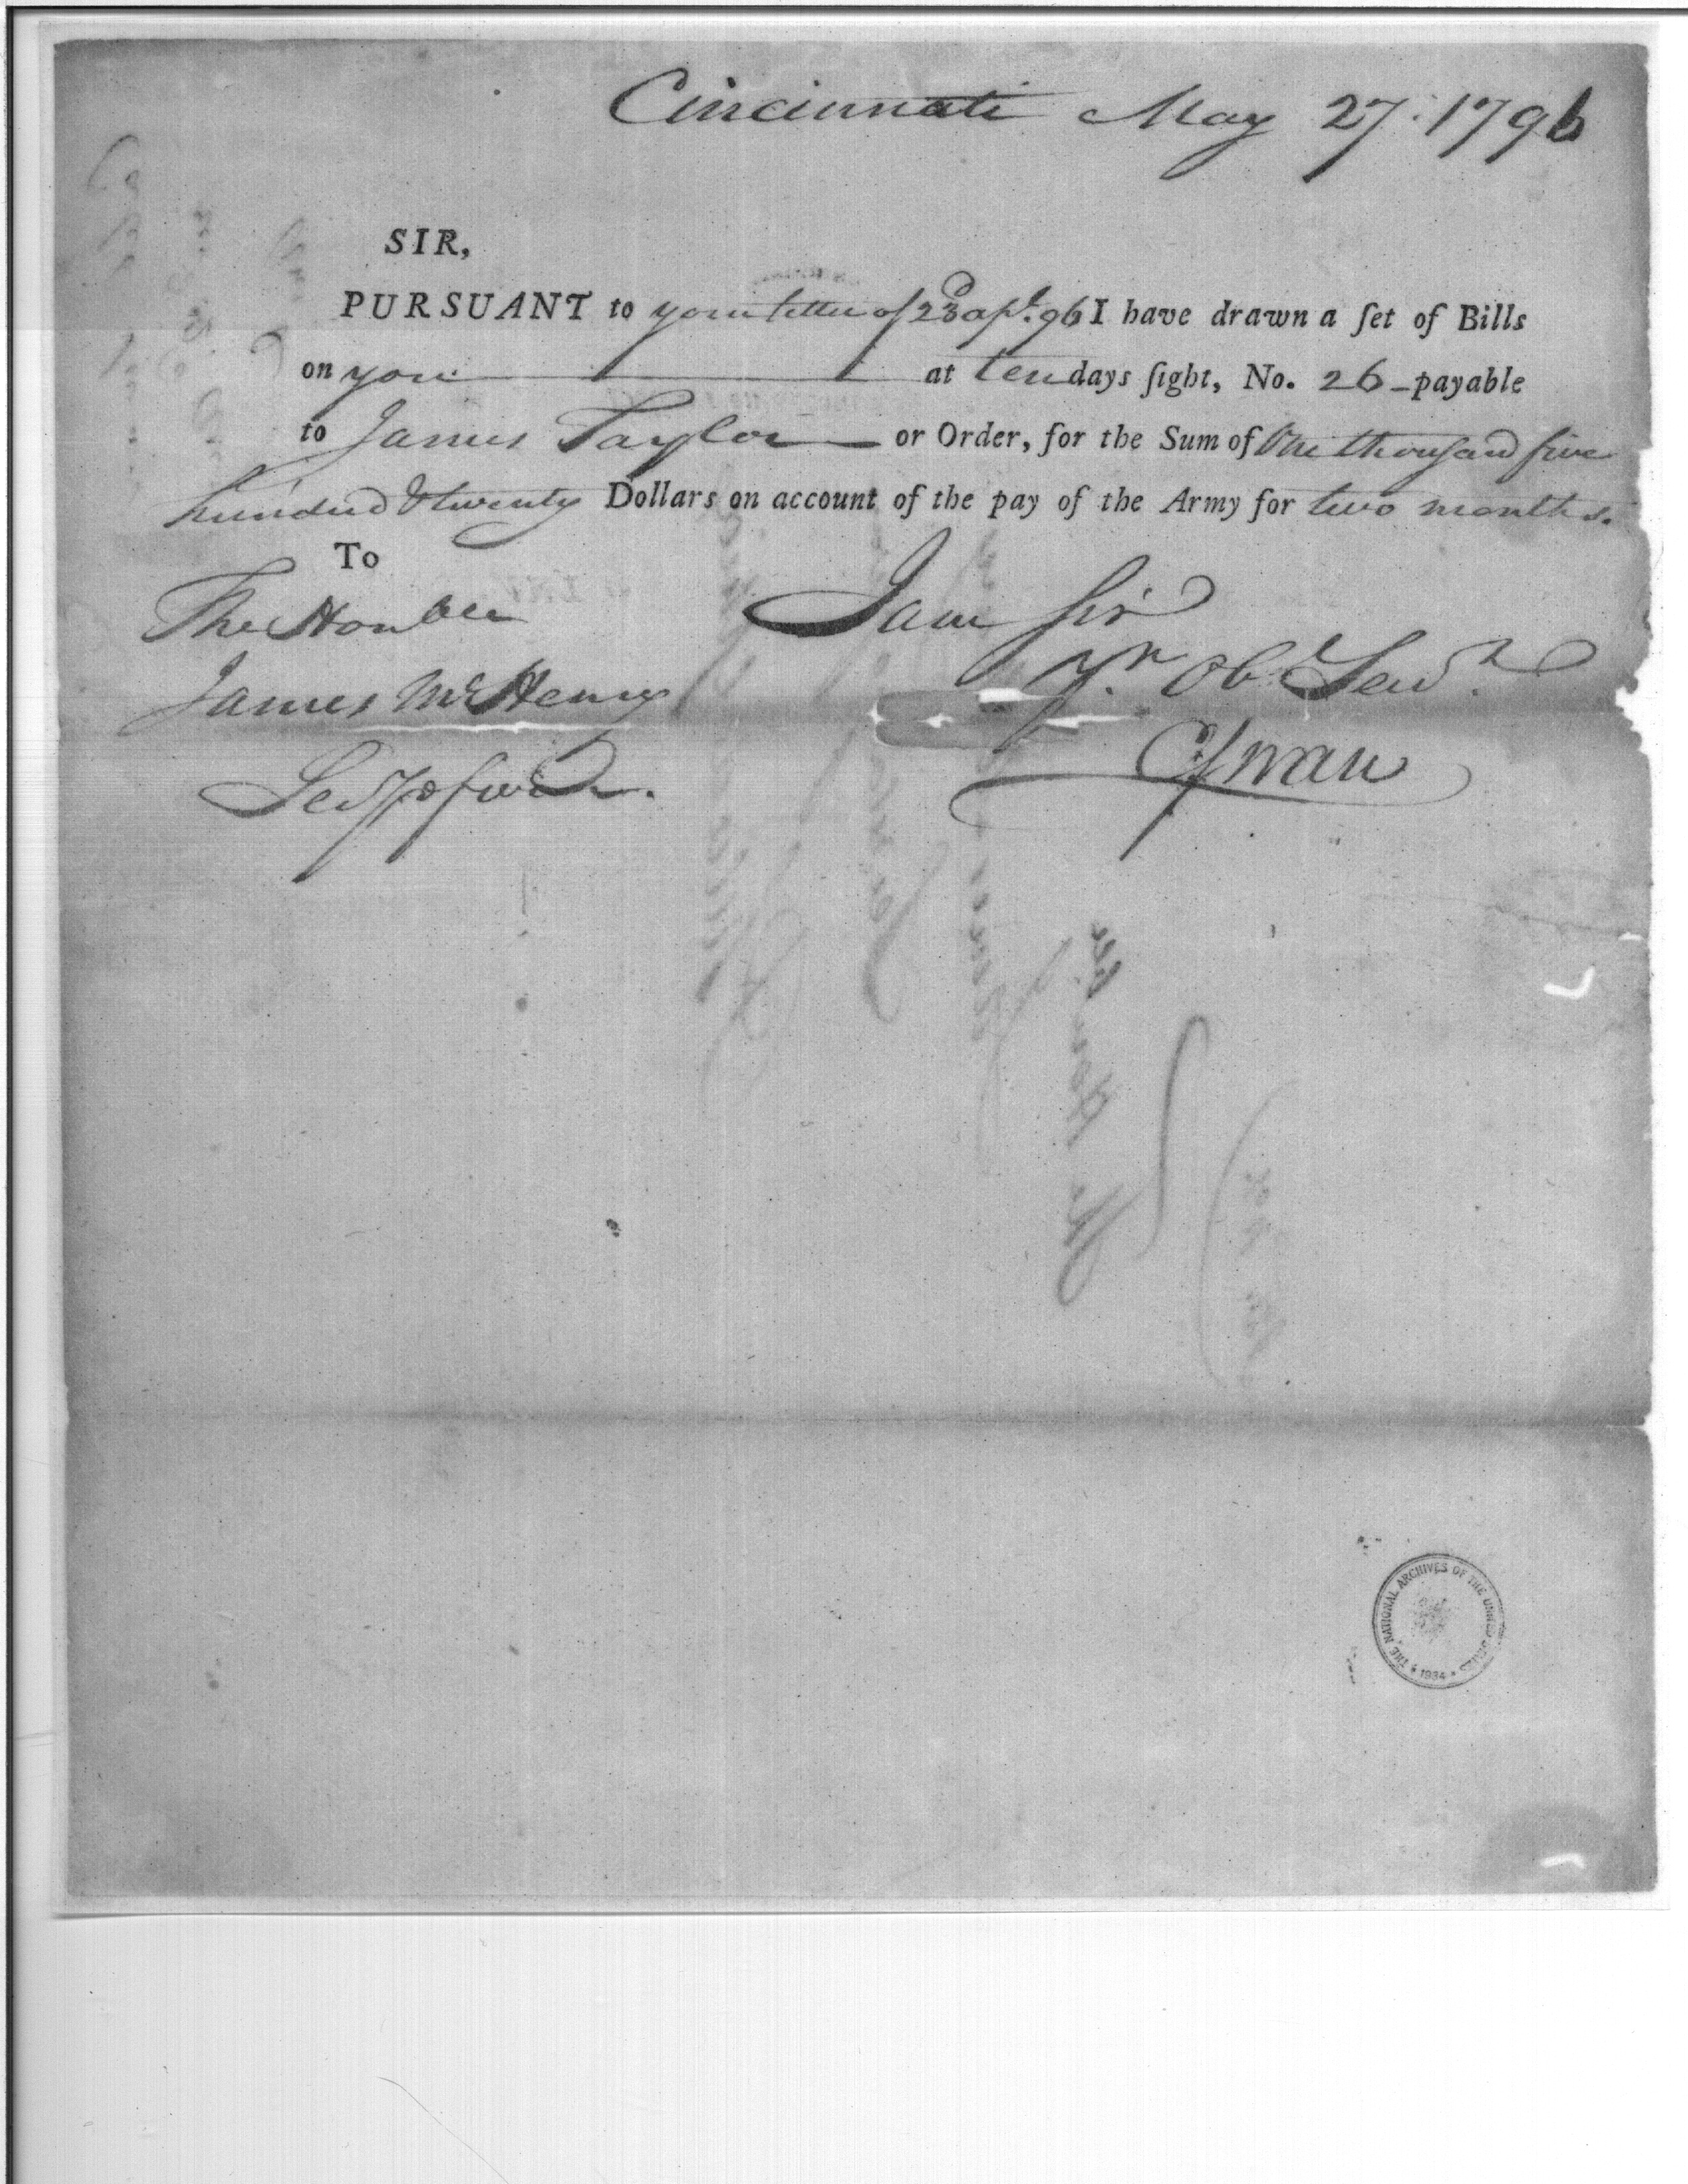 Cincinnati May 27. 1796
SIR,
PURSUANT to your letter of 23d apl. 96 I have drawn a ſet of Bills
on you at ten days ſight, No. 26 payable
to James Taylor or Order, for the Sum of One thouſand five
hundred & twenty Dollars on account of the pay of the Army for two months.
To
The Honble
I am Sir
Yr. Ob. Servt.
James McHenry
C Swan
Secy of war
THE NATIONAL ARCHIVES OF THE UNITED STATES
* 1934 *